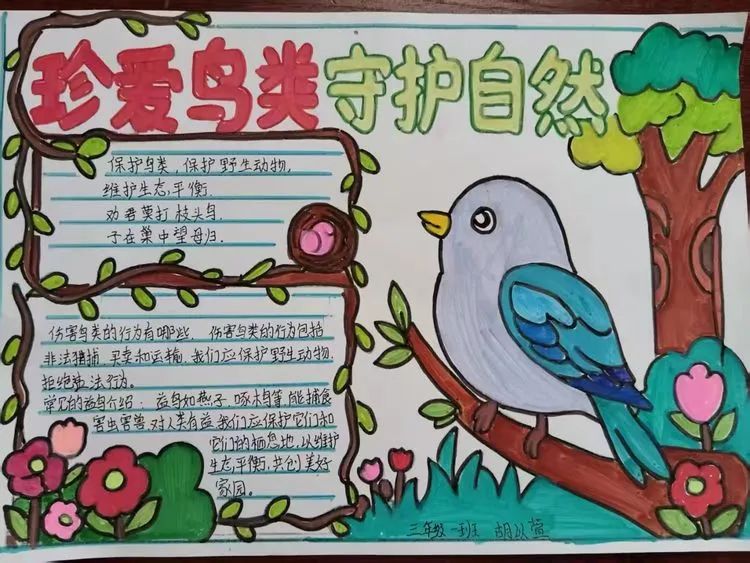 珍爱鸟类守护自然
保护鸟类,保护野生动物,
维护生态平衡.
劝君莫打枝头鸟.
子在巢中望母归.
伤害鸟类的行为有哪些. 伤害鸟类的行为包括
非法猎捕、买卖和运输,我们应保护野生动物,
拒绝违法行为。
常见的益鸟介绍:益鸟如燕子、啄木鸟等,能捕食
害虫害兽对人类有益,我们应保护它们和
它们的栖息地,以维护
生态平衡,共创美好
家园。
三年级一班 胡以萱